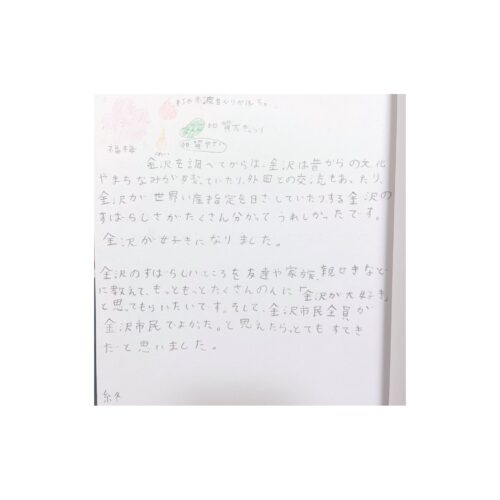 加賀太きゅうり
福梅
金沢を調べてからは、金沢は昔からの文化
やまちなみが残っていたり、外国との交流もあったり、
金沢が世界い産指定を目ざしていたりする金沢の
すばらしさがたくさん分かってうれしかったです。
金沢が好きになりました。
金沢のすばらしいところを友達や家族、親せきなど
に教えて、もっともっとたくさんの人に「金沢が大好き」
と思ってもらいたいです。そして、金沢市民全員が
金沢市民でよかった。と思えたらとてもすてき
だと思いました。
終